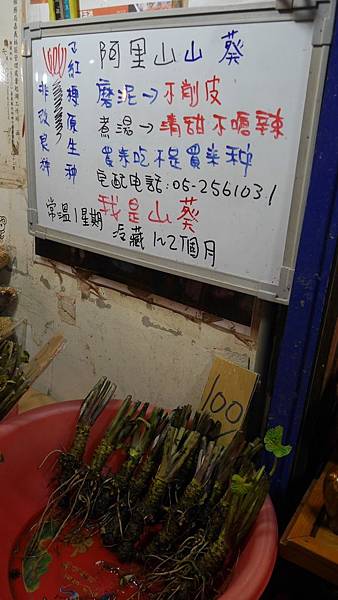 阿里山山葵
磨泥→不削皮
煮湯→清甜不嗆辣
買來吃不是買來种
宅配电話:05-2561031
我是山葵
常溫1星期
冷藏1~2個月
紅梗原生种
非改良种
100